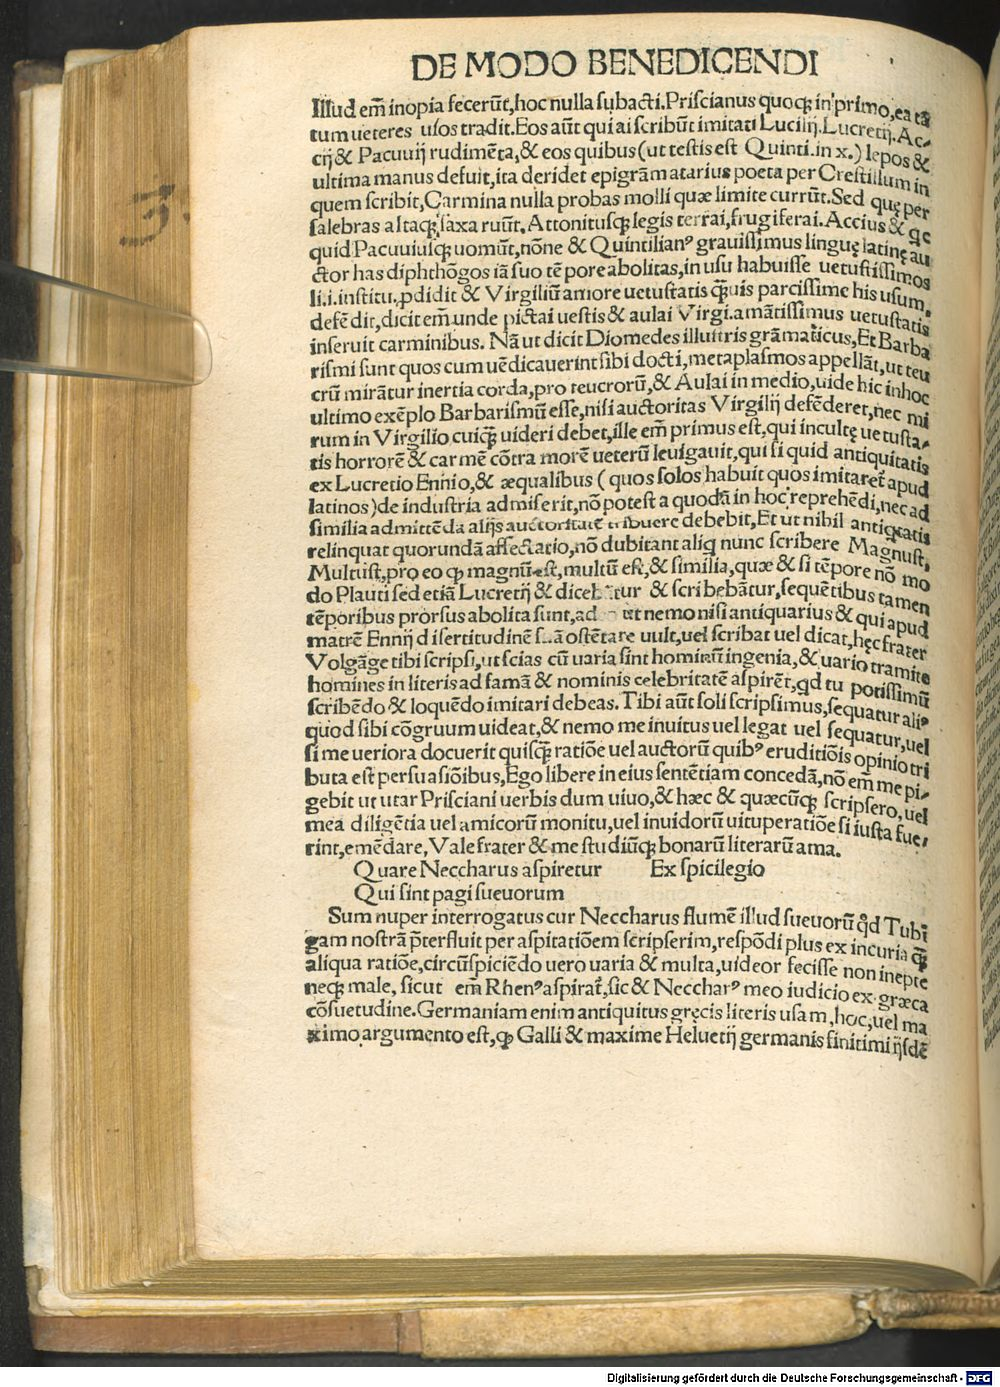 DE MODO BENEDICENDI
Illud em̄ inopia fecerũt,hoc nulla subacti.Priscianus quoqꝫ in primo,ea tã
tum ueteres usos tradit.Eos aũt qui ai scribũt imitati Lucilij.Lucretij.Ac⸗
cij & Pacuuij rudimẽta,& eos quibus(ut testis est Quinti.in x.) lepos &
ultima manus defuit,ita deridet epigrãmatarius poeta per Crestillum in
quem scribit,Carmina nulla probas molli quæ limite currũt.Sed quę per
salebras altaqꝫ saxa ruũt.Attonitusqꝫ legis terrai,frugiferai.Accius &
quid Pacuuiusqꝫ uomũt,nõne & Quintilianꝰ grauissimus linguę latinę au
ctor has diphthõgos iã suo tẽpore abolitas,in usu habuisse uetustissimos
li.i.institu.ꝓdidit & Virgiliũ amore uetustatis quis parcissime his usum.
defẽdit,dicit em̄.unde pictai uestis & aulai Virgi.amãtissimus uetustatis
inseruit carminibus. Nã ut dicit Diomedes illustris grãmaticus,Et Barba
rismi sunt quos cum uẽdicauerint sibi docti,metaplasmos appellãt,ut teu
crũ mirãtur inertia corda,pro teucrorũ,& Aulai in medio,uide hic in hoc
ultimo exẽplo Barbarismũ esse,nisi auctoritas Virgilij defẽderet,nec mi
rum in Virgilio cuiqꝫ uideri debet,ille em̄ primus est,qui incultę uetusta⸗
tis horrorẽ & carmẽ cõtra morẽ ueterũ leuigauit,qui si quid antiquitatis
ex Lucretio Ennio,& æqualibus ( quos solos habuit quos imitaret᷑ apud
latinos)de industria admiserit,nõ potest a quodã in hoc reprehẽdi,nec ad
similia admittẽda alijs auctoritatẽ tribuere debebit,Et ut nihil antiqtatis
relinquat quorundã affectatio,nõ dubitant aliq nunc scribere Magnust,
Multust,pro eo ꝙ magnũ est, multũ est,& similia,quæ & si tẽpore nõ mo
do Plauti sed etiã Lucretij & dicebãtur & scribebãtur,sequẽtibus tamen
tẽporibus prorsus abolita sunt,adeo ut nemo nisi antiquarius & qui apud
matrẽ Ennij disertitudinẽ suã ostẽtare uult,uel scribat uel dicat,hęc frater
Volgãge tibi scripsi,ut scias cũ uaria sint hominũ ingenia,& uario tramite
homines in literis ad famã & nominis celebritatẽ aspirẽt,qd tu potissimũ
scribẽdo & loquẽdo imitari debeas.Tibi aũt soli scripsimus,sequatur ali⸗
quod sibi cõgruum uideat,& nemo me inuitus uel legat uel sequatur,uel
si me ueriora docuerit quisqꝫ ratiõe uel auctorũ quibꝰ eruditiõis opinio tri
buta est persuasiõibus,Ego libere in eius sentẽtiam concedã,nõ em̄ me pi⸗
gebit ut utar Prisciani uerbis dum uiuo,& hæc & quæcũqꝫ scripsero,uel
mea diligẽtia uel amicorũ monitu,uel inuidorũ uituperatiõe si iusta fue⸗
rint,emẽdare,Vale frater & me studiũqꝫ bonarũ literarũ ama.
Quare Neccharus aspiretur Ex spicilegio
Qui sint pagi sueuorum
Sum nuper interrogatus cur Neccharus flumẽ illud sueuorũ qd Tubi
gam nostrã p̄terfluit per aspiratiõem scripserim,respõdi plus ex incuria qꝫ
aliqua ratiõe,circũspiciẽdo uero uaria & multa,uideor fecisse non inepte
neqꝫ male, sicut em̄ Rhenꝰ aspirat᷑,sic & Neccharꝰ meo iudicio ex græca
cõsuetudine.Germaniam enim antiquitus gręcis literis usam,hoc,uel ma
ximo argumento est,ꝙ Galli & maxime Heluetij germanis finitimi ijsdẽ
Digitalisierung gefördert durch die Deutsche Forschungsgemeinschaft - DFG